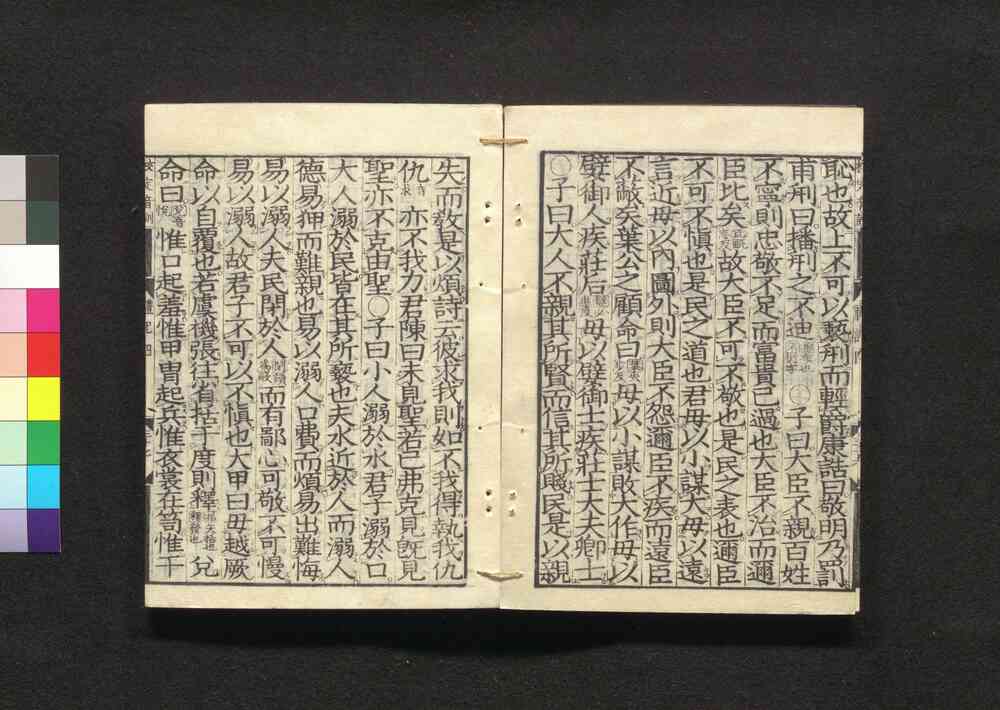 恥也故上不可以褻刑而輕爵康誥曰敬明乃罰
甫刑曰播刑之不迪○子曰大臣不親百姓
不寧則忠敬不足而富貴已過也大臣不治而邇
臣比矣故大臣不可不敬也是民之表也邇臣
不可不愼也是民之道也君毋以小謀大毋以遠
言近毋以內圖外則大臣不怨邇臣不疾而遠臣
不蔽矣葉公之顧命曰毋以小謀敗大作毋以
嬖御人疾莊后毋以嬖御士疾莊士大夫卿士
○子曰大人不親其所賢而信其所賤民是以親
失而敎是以煩詩云彼求我則如不我得執我仇
仇亦不我力君陳曰未見聖若己弗克見旣見
聖亦不克由聖○子曰小人溺於水君子溺於口
大人溺於民皆在其所褻也夫水近於人而溺人
德易狎而難親也易以溺人口費而煩易出難悔
易以溺人夫民閉於人而有鄙心可敬不可慢
易以溺人故君子不可以不愼也大甲曰毋越厥
命以自覆也若虞機張往省括于度則釋兌
命曰惟口起羞惟甲冑起兵惟衣裳在笥惟干